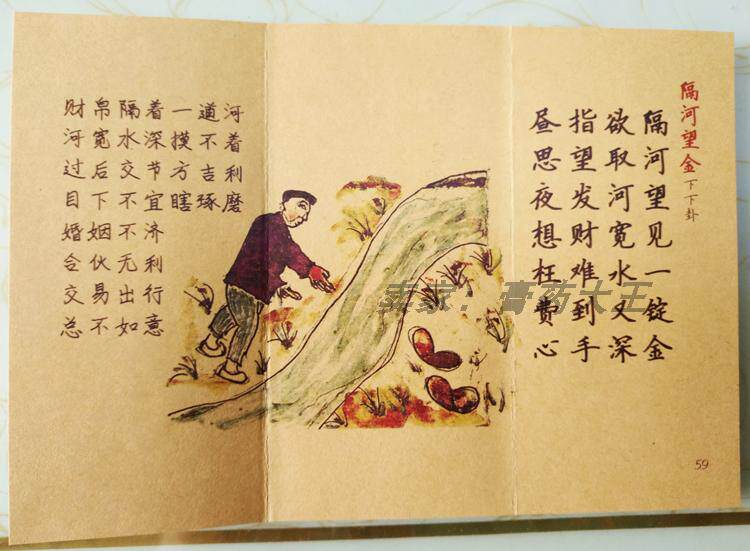 隔河望金 下下卦
隔河望见一锭金
欲取河宽水又深
指望发财难到手
昼思夜想枉费心
财帛隔着一道河
河宽水深摸不着
过后交节方吉利
目下不宜瞎琢磨
婚姻不济
合伙无利
交易出行
总不如意
卖家：膏药大王
59